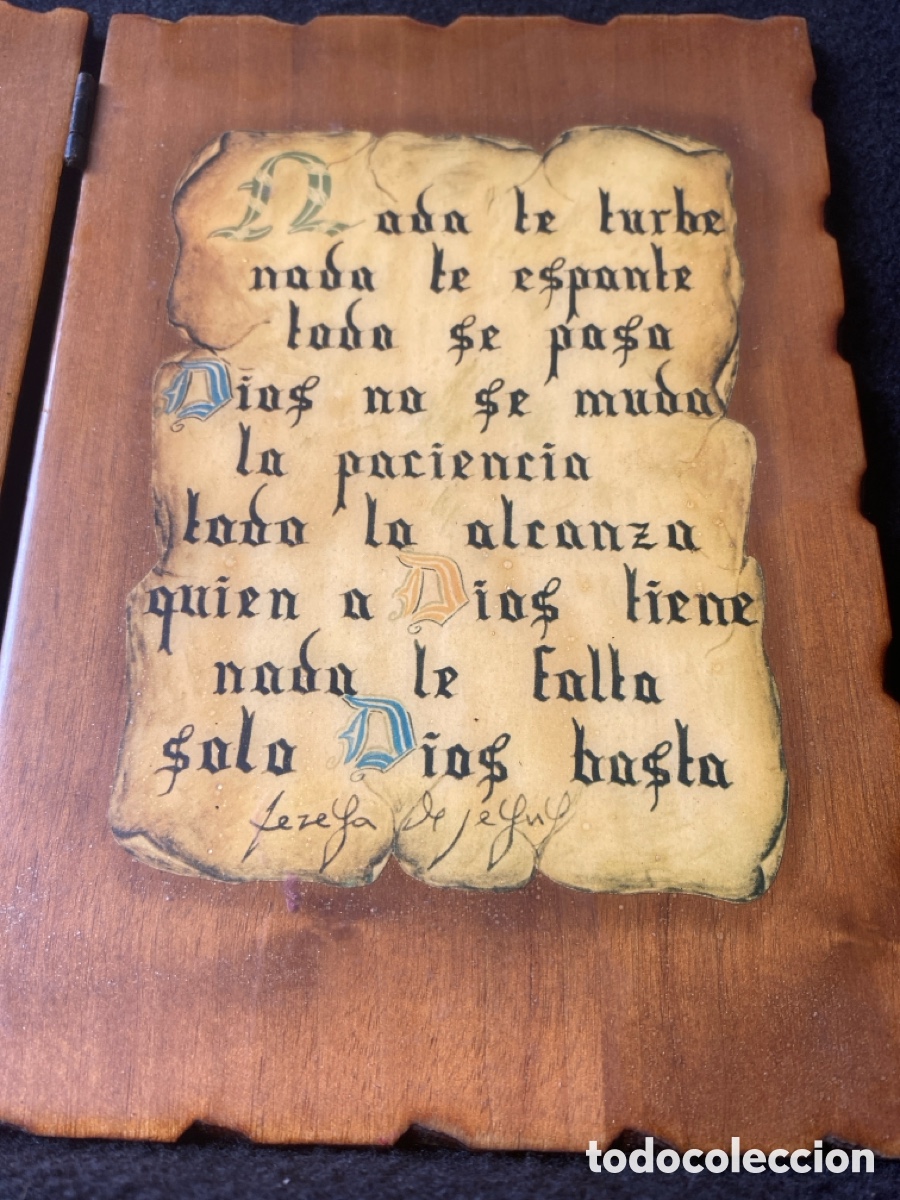 Nada te turbe
nada te espante
todo se pasa
Dios no se muda
la paciencia
todo lo alcanza
quien a Dios tiene
nada le falta
solo Dios basta
teresa de jesus
todocoleccion